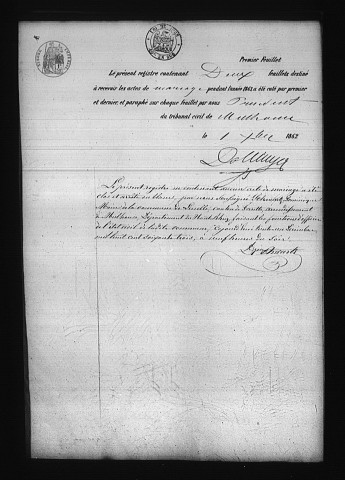 Premier Feuillet
Le présent registre contenant Deux feuillets destiné
à recevoir les actes de mariage pendant l'année 1863 a été coté par premier
et dernier, et paraphé sur chaque feuillet par nous Président
du tribunal civil de Mulhouse
le 1 Xbre 1862
Le présent registre ne contenant aucun acte de mariage a été
clos et arrêté en blanc, par nous soussigné Schwartz Dominique
Maire de la commune de canton de arrondissement
de Mulhouse, Département du Haut Rhin, faisant les fonctions d'officier
de l'état civil de la dite commune, aujourd'hui trente un Décembre
mil huit cent soixante trois, à neuf heures du soir
Schwartz